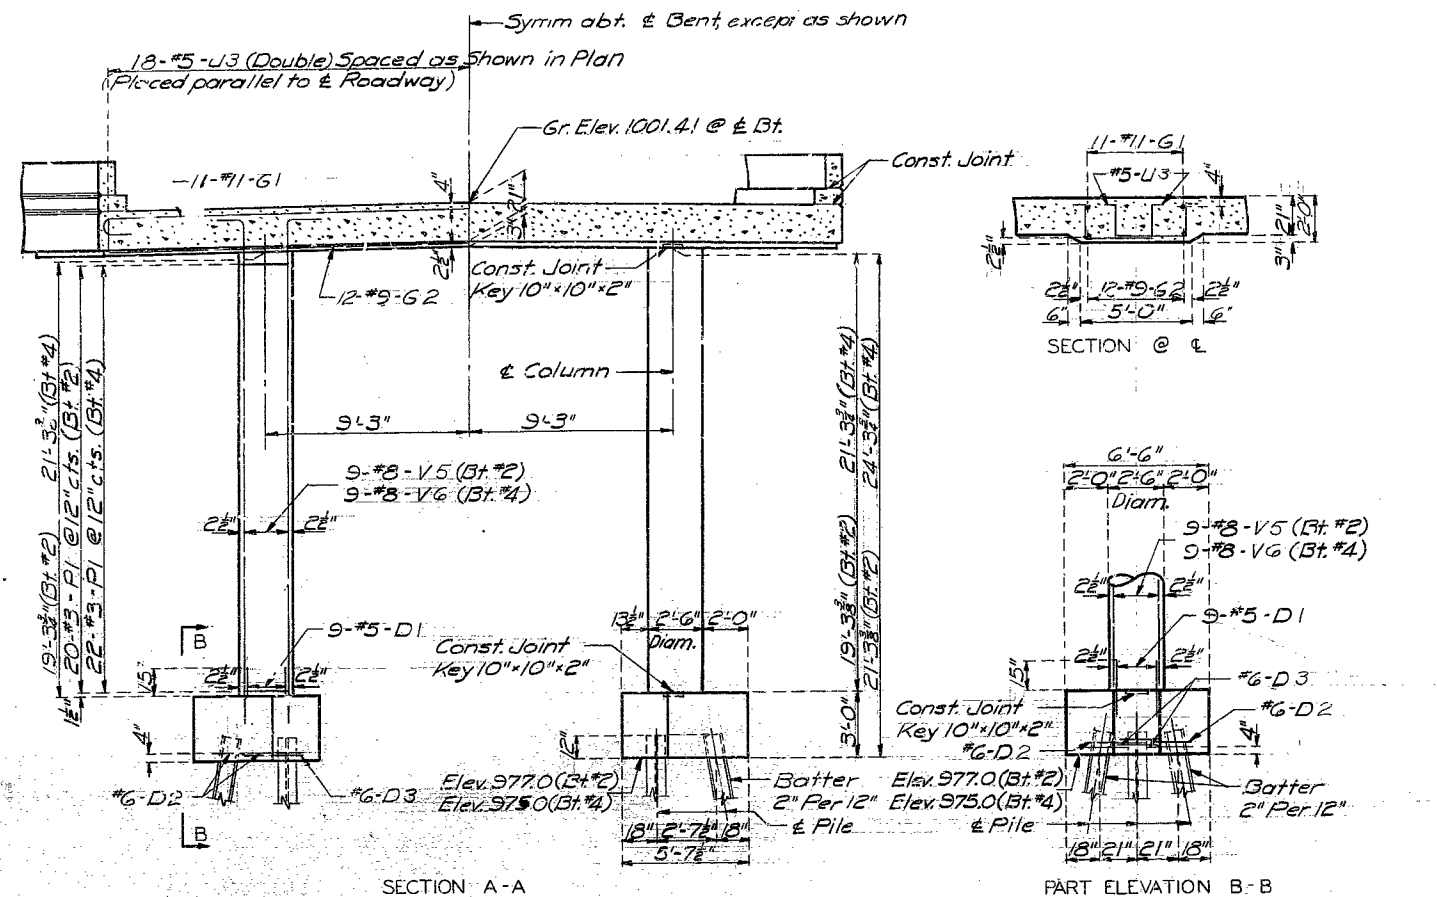 Symm abt. ℄ Bent, except as shown
18-#5-U3 (Double) Spaced as Shown in Plan
(Placed parallel to ℄ Roadway)
Gr. Elev. 1001.41 @ ℄ Bt.
Const. Joint
11-#11-G1
4"
21"
3"
2½"
12-#9-G2
Const. Joint
Key 10"×10"×2"
℄ Column
9'-3"
9'-3"
21'-3¾" (Bt #4)
19'-3¾" (Bt #2)
20-#3-P1 @ 12" cts. (Bt #2)
22-#3-P1 @ 12" cts. (Bt #4)
1½"
9-#8-V5 (Bt. #2)
9-#8-V6 (Bt. #4)
2½"
2½"
21'-3¾" (Bt #4)
24'-3¾" (Bt #4)
19'-3¾" (Bt #2)
3'-0"
B
9-#5-D1
15"
2½"
2½"
4"
#6-D2
#6-D3
B
Const. Joint
Key 10"×10"×2"
13½"
2'-6"
2'-0"
Diam.
12"
Elev. 977.0 (Bt. #2)
Elev. 975.0 (Bt. #4)
Batter
2" Per 12"
℄ Pile
18"
2'-7½"
18"
5'-7½"
SECTION A-A
11-#11-G1
#5-U3
4"
21"
20"
3"
2½"
2½"
12-#9-G2
2½"
6"
5'-0"
6"
SECTION @ ℄
6'-6"
2'-0"
2'-6"
2'-0"
Diam.
9-#8-V5 (Bt. #2)
9-#8-V6 (Bt. #4)
2½"
2½"
9-#5-D1
2½"
2½"
15"
#6-D3
Const. Joint
Key 10"×10"×2"
#6-D2
#6-D2
4"
Elev. 977.0 (Bt. #2)
Elev. 975.0 (Bt. #4)
Batter
2" Per 12"
℄ Pile
18"
21"
21"
18"
PART ELEVATION B-B